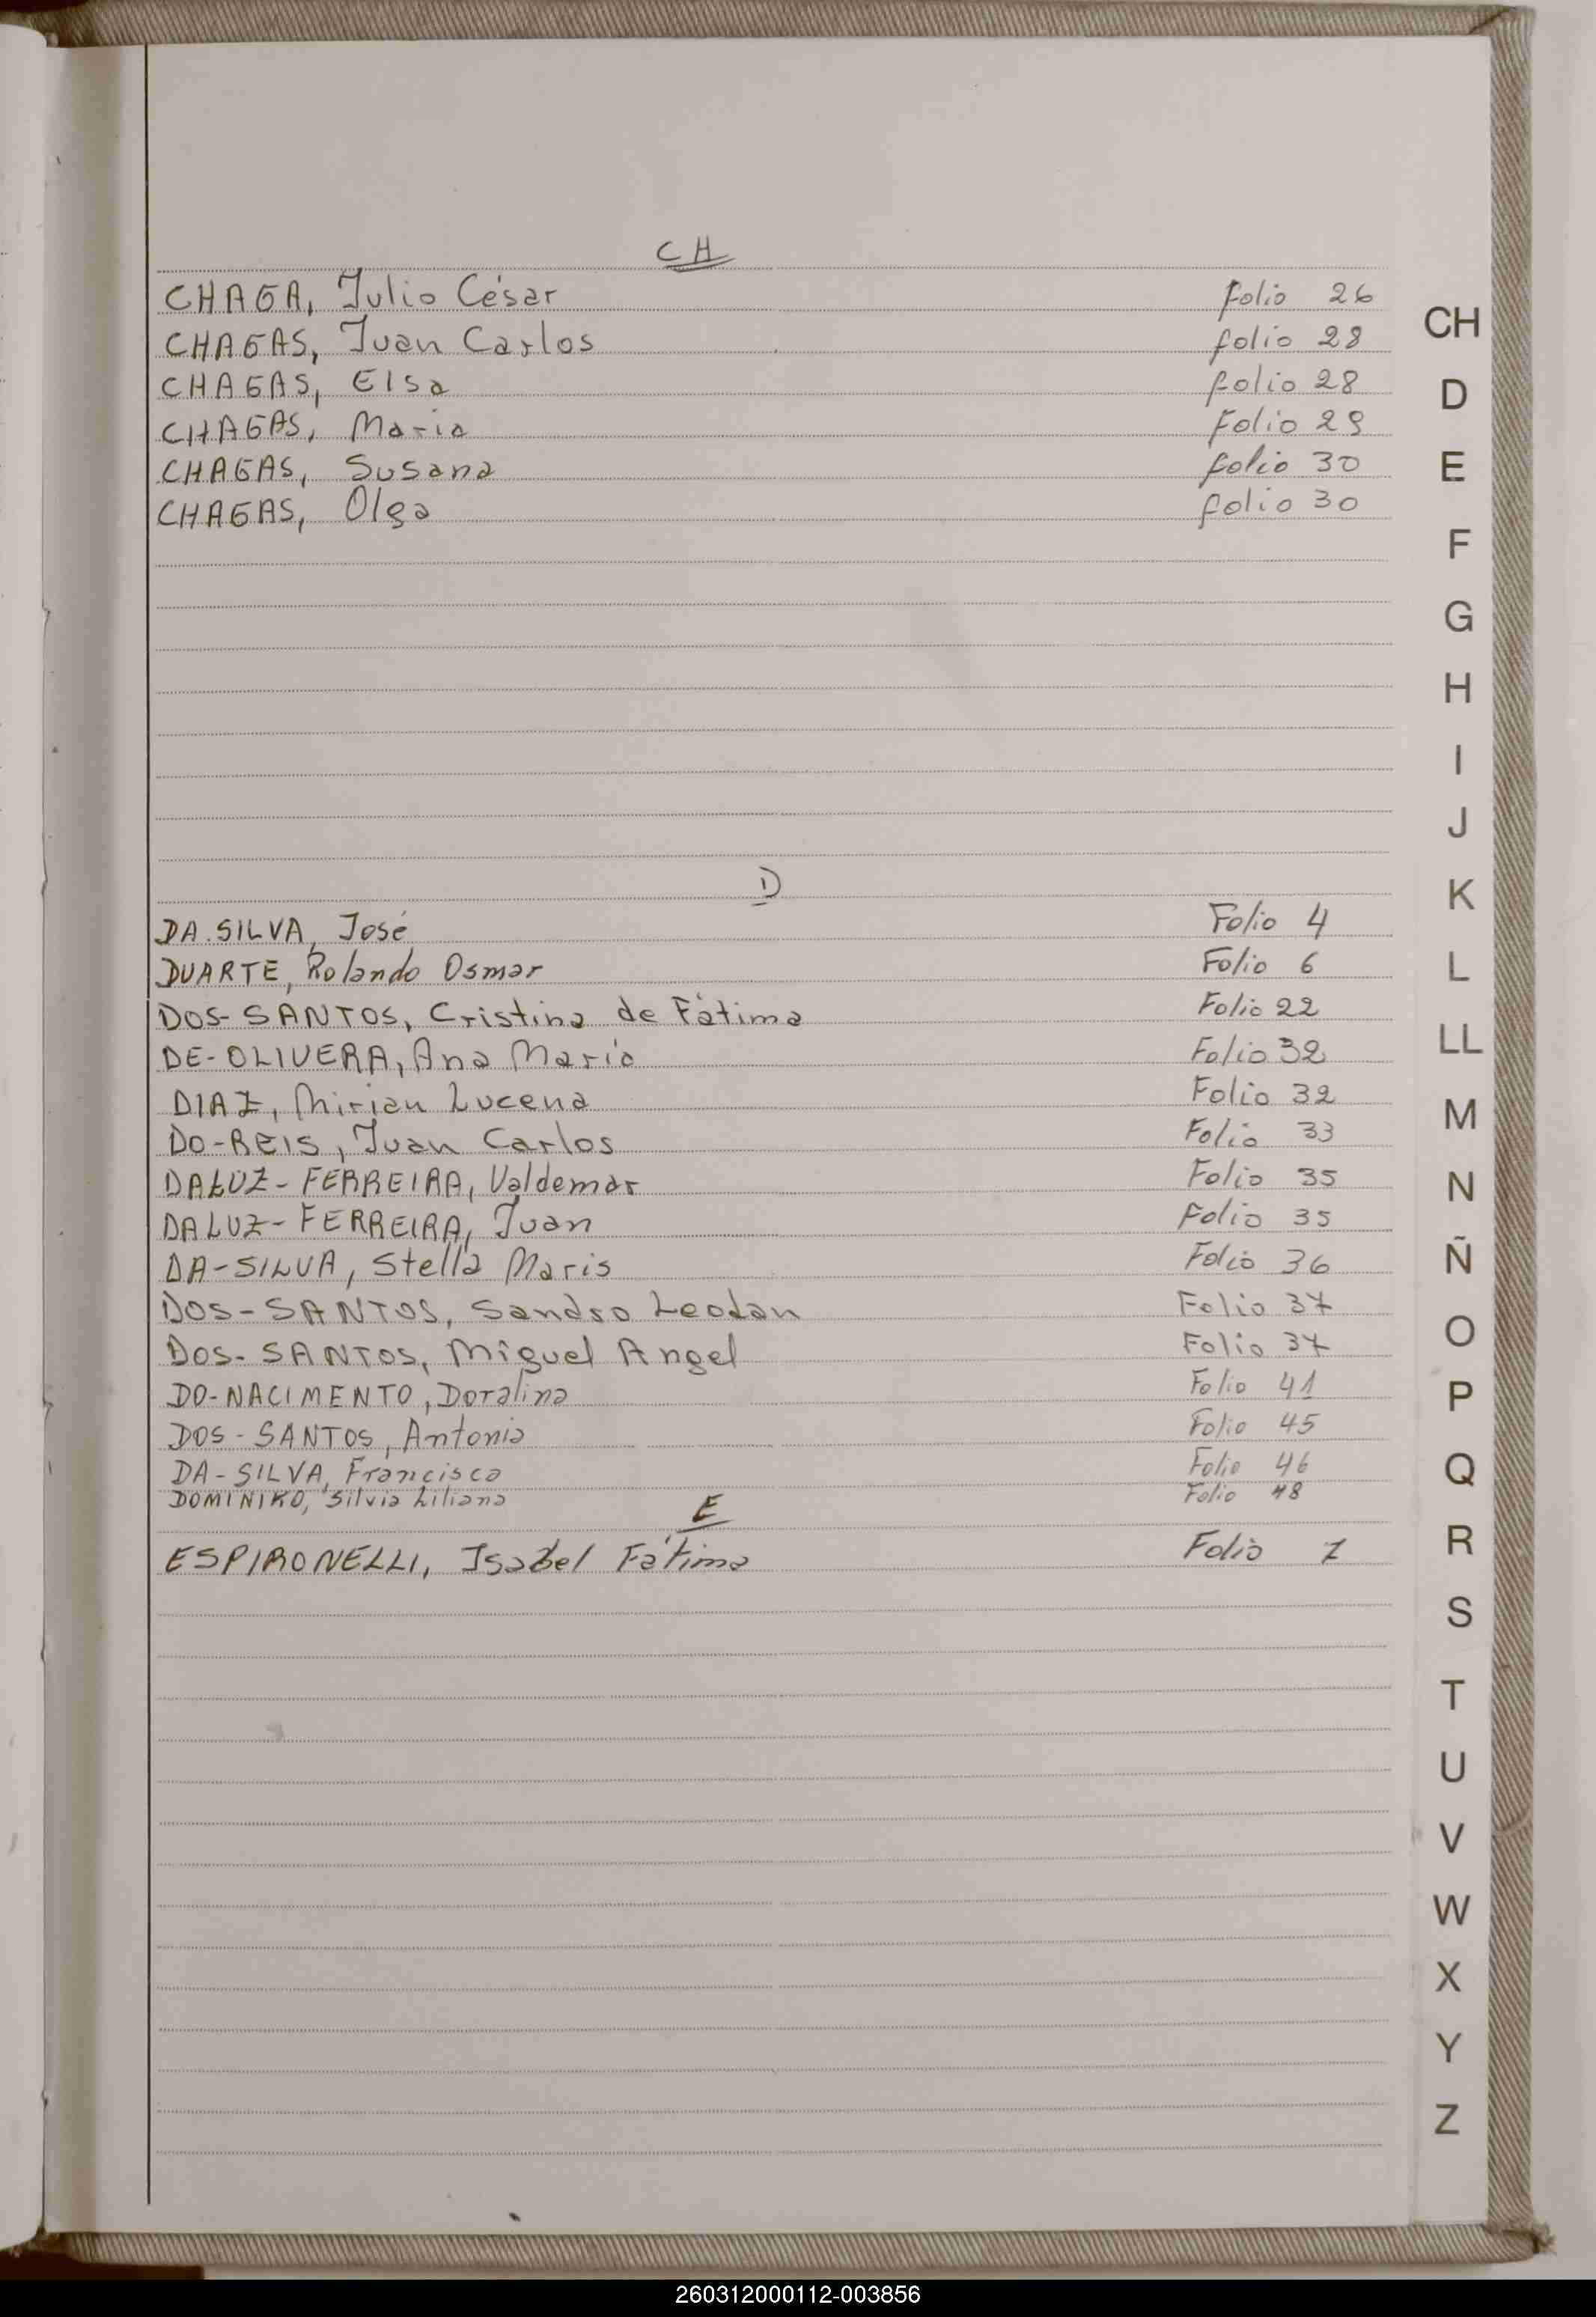 CH
CHAGA, Julio César folio 26
CHAGAS, Juan Carlos folio 28
CHAGAS, Elsa folio 28
CHAGAS, Maria Folio 29
CHAGAS, Susana folio 30
CHAGAS, Olga folio 30
D
DA.SILVA, José Folio 4
DUARTE, Rolando Osmar Folio 6
DOS-SANTOS, Cristina de Fátima Folio 22
DE-OLIVERA, Ana María Folio 32
DIAZ, Mirian Lucena Folio 32
DO-REIS, Juan Carlos Folio 33
DALUZ-FERREIRA, Valdemar Folio 35
DALUZ-FERREIRA, Juan Folio 35
DA-SILVA, Stella Maris Folio 36
DOS-SANTOS, Sandro Leodan Folio 37
DOS-SANTOS, Miguel Angel Folio 37
DO-NACIMENTO, Doralina Folio 41
DOS-SANTOS, Antonia Folio 45
DA-SILVA, Francisca Folio 46
DOMINIKO, Silvia Liliana Folio 48
E
ESPIRONELLI, Isabel Fátima Folio
CH
D
E
F
G
H
I
J
K
L
LL
M
N
Ñ
O
P
Q
R
S
T
U
V
W
X
Y
Z
260312000112-003856